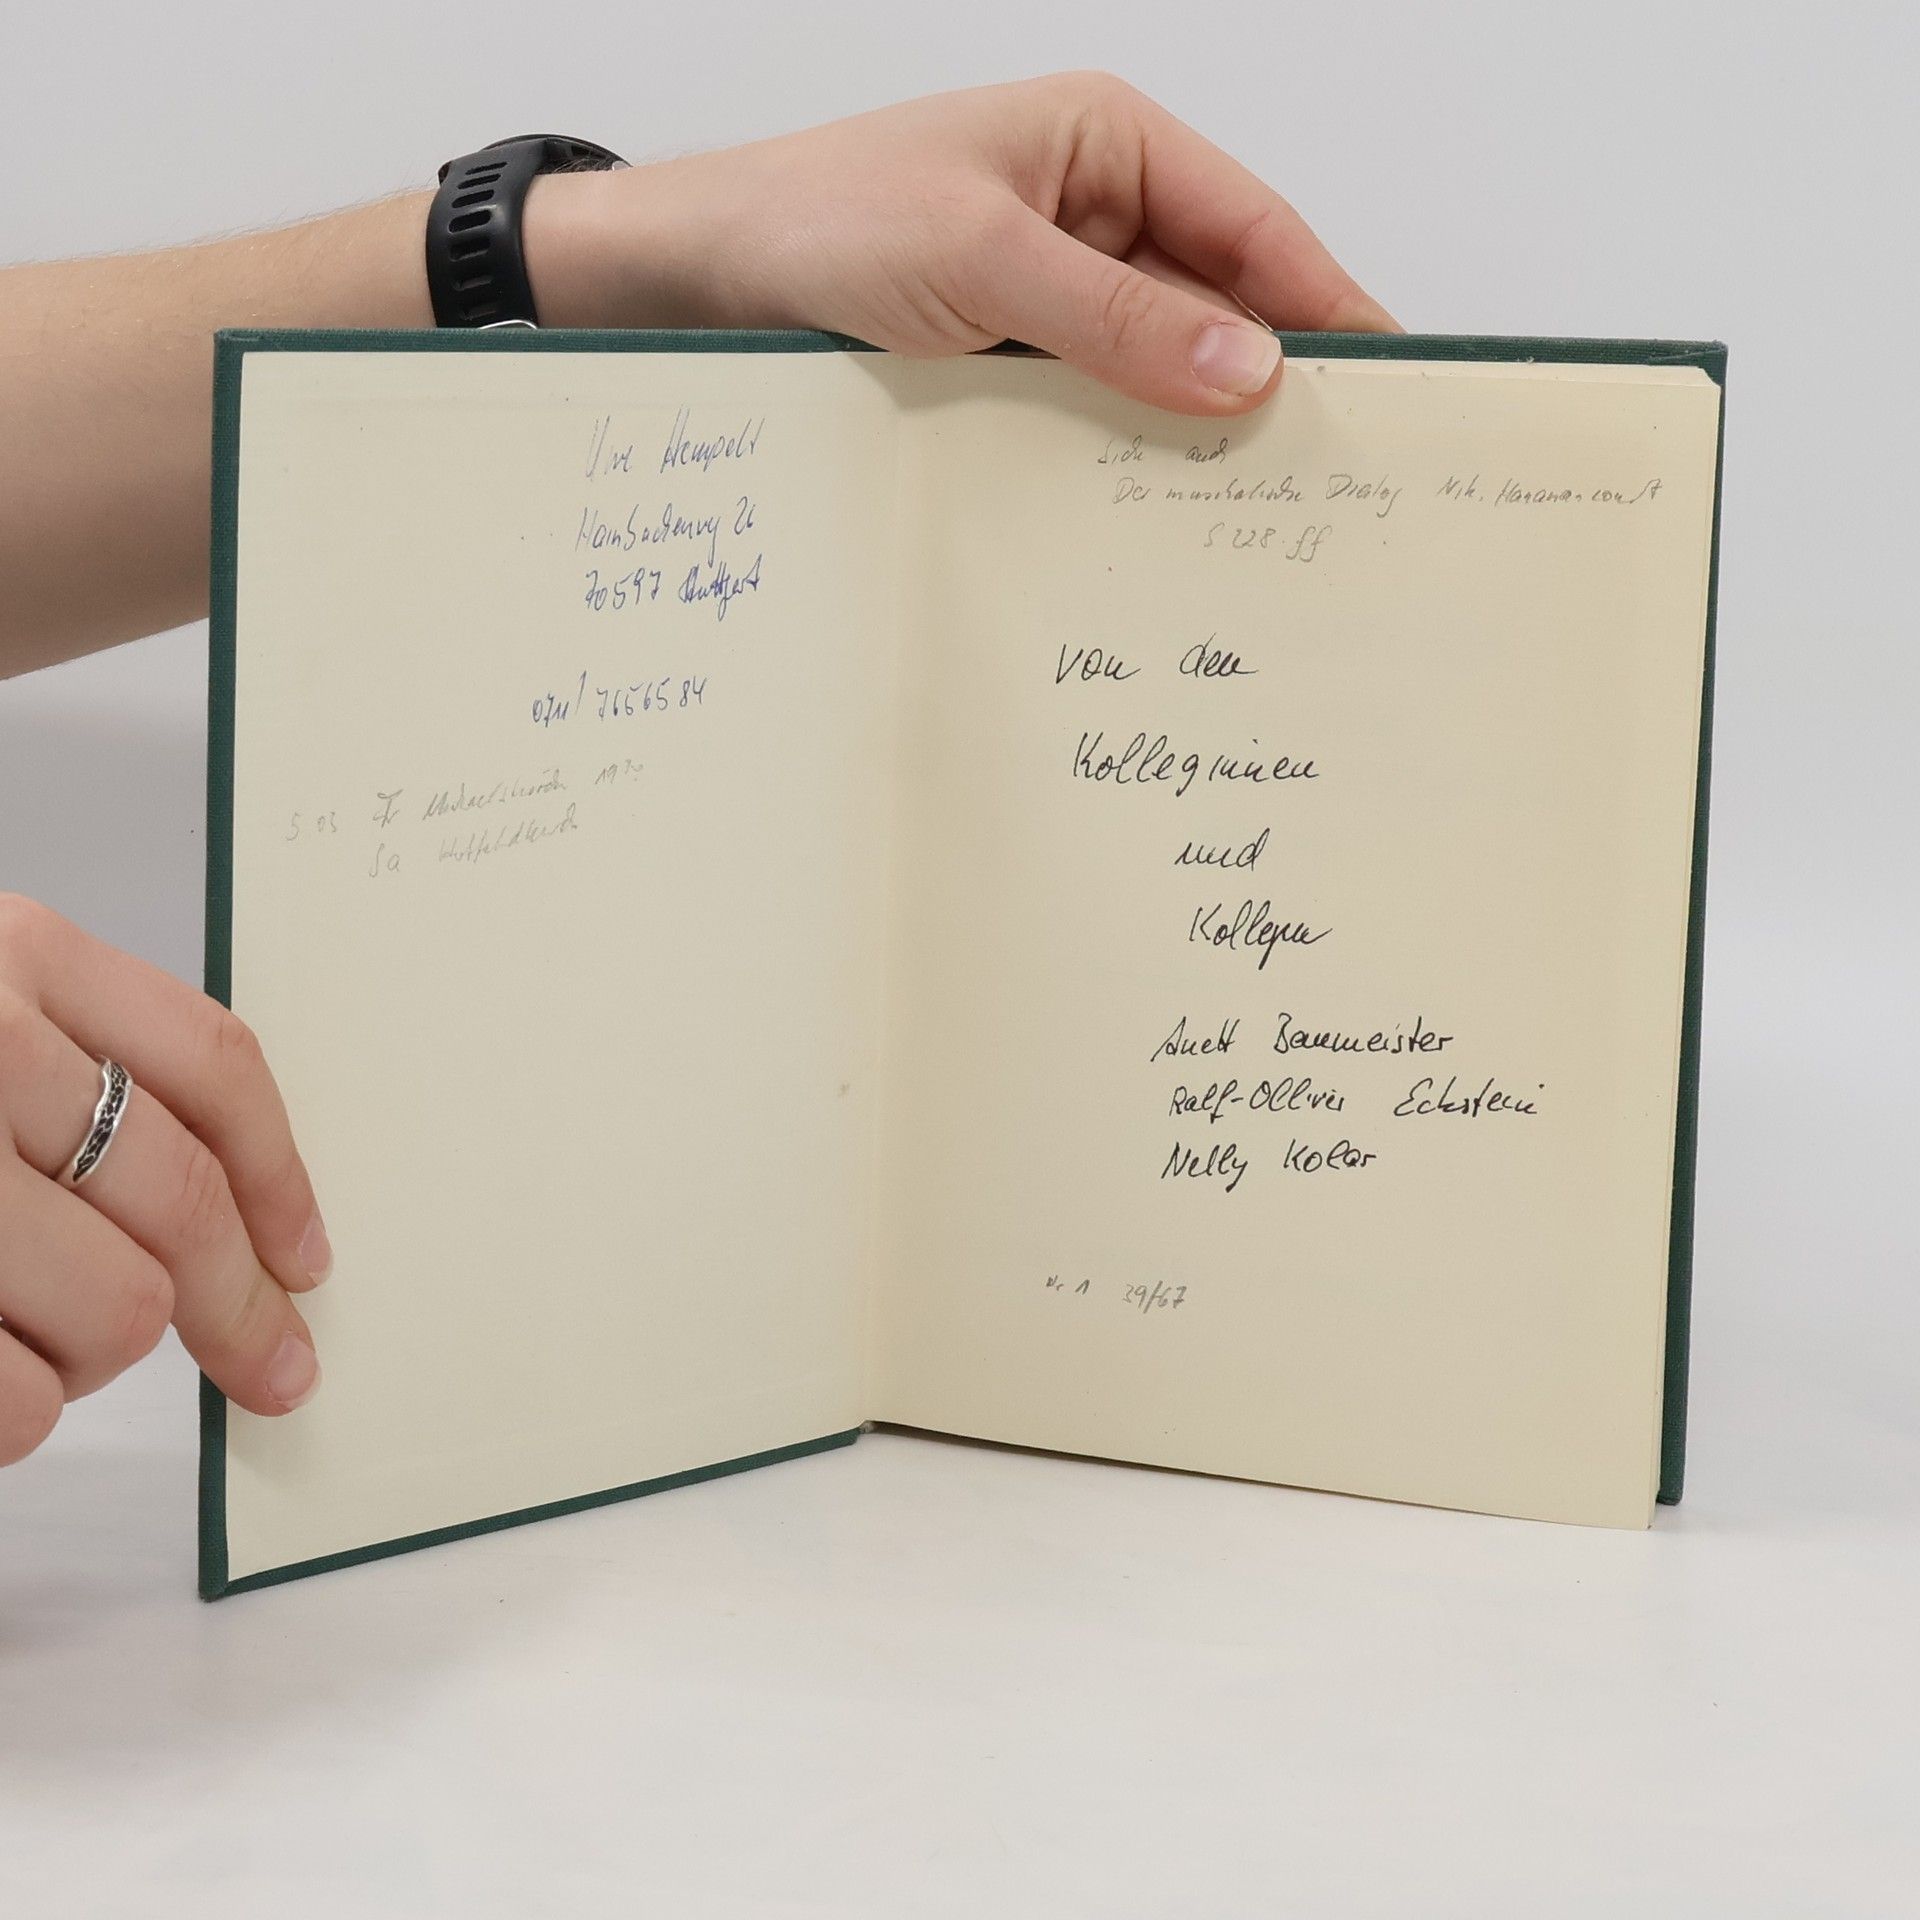 Uwe Hempelt
26
70597 Stuttgart
0711/ 7656584
19 30
Sa
Sieh auch
Der musikalische Dialog Nik. Harnoncourt
S 228 ff
von den
Kolleginnen
und
Kollegen
Anett Baumeister
Ralf-Olliver Eckstein
Nelly Kolar
Nr 1 39/67